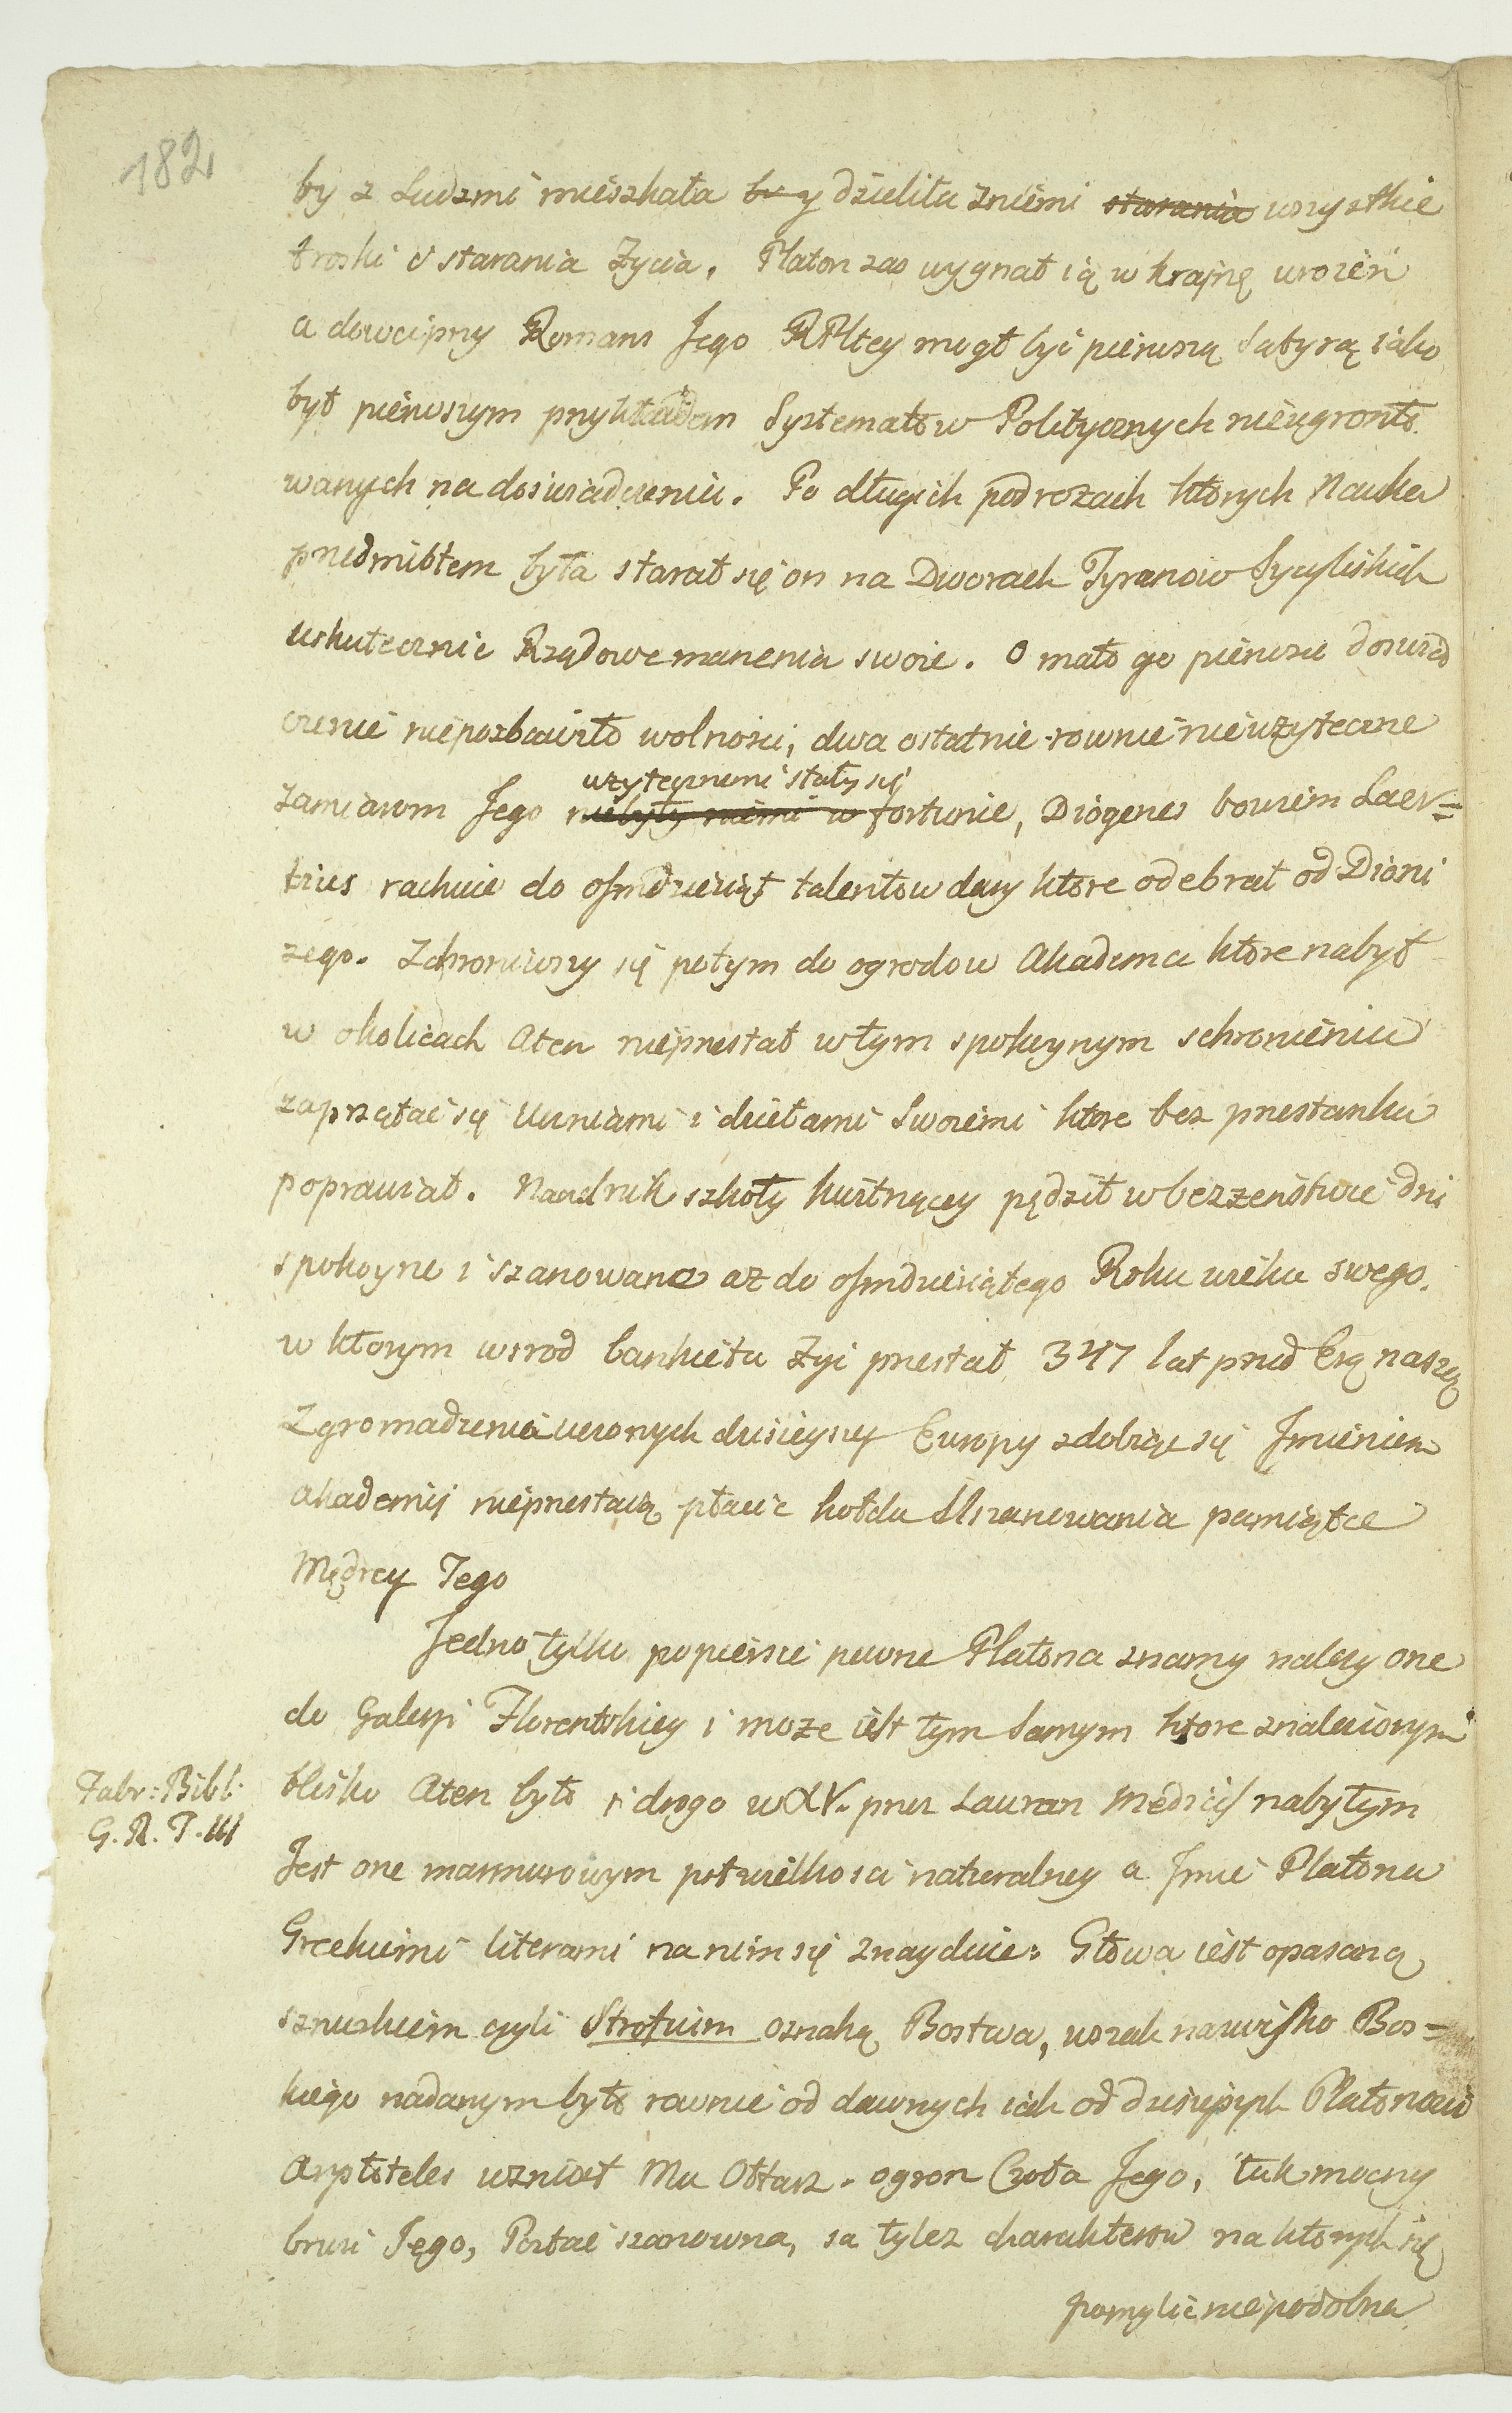 182
by z Ludzmi mieszkała by y dzieliła zniemi starania wszystkie
troski i starania Zycia. Platon zas wygnał ią w krainę uroień
a dowcipny Romans Jego RPltey mogł byi pierwszą Satyrą iako
był pierwszym przykładem Systematow Politycznych nieugronto
wanych na doswiadczeniu. Po długich podrożach ktorych Nauka
przedmiotem była starał się on na Dworach Tyranow Sycyliskich
uskutecznić Rządowe marzenia swoie. O mało go pierwsze doswiad
czenie niepozbawiło wolnosci, dwa ostatnie rownie nieuzyteczne
uzytecznemi stały się
zamiarom Jego niebyły niemi w fortunie, Diogenes bowiem Laer=
tius rachuie do osmdziesiąt talentow dary ktore odebrał od Dioni
zego. Schroniwszy się potym do ogrodow Akadema ktore nabył
w okolicach Aten nieprzestał wtym spokoynym schronieniu
zaprzątać się Uczniami i dziełami Swoiemi ktore bez przestanku
poprawiał. Naczelnik szkoły kwitnącey pędził w bezzeństwie dni
spokoyne i szanowane az do osmdziesiątego Roku wieku swego,
w ktorym wsrod bankietu żyi przestał 347 lat przed Erą naszą
Zgromadzenia uczonych dzisieyszey Europy zdobiąc się Imieniem
Akademij nieprzestaią płacić hołdu Uszanowania pamiątce
Mędrcy Tego
Jedno tylko popiersie pewne Platona znamy nalezy one
do Galeryi Florentskiey i moze iest tym samym ktore znalezionym
blisko Aten było i drogo w XV. przez Lauran Medicis nabytym
Fabr: Bibl:
G. R. T. III
Jest one marmurowym poł wielkosci naturalney a Jmie Platona
Greckiemi literami na nim się znayduie: Głowa iest opasaną
sznurkiem czyli Strofium oznaką Bostwa, wszak nazwisko Bos=
kiego nadanym było rownie od dawnych iak od dzisieyszych Platonowi
Arystoteles wzniosł Mu Ołtarz. ogrom Czoła Jego, tak mocny
brwi Jego, Postać szanowna, sa tylez charakterow na ktorych się
pomylić niepodobna